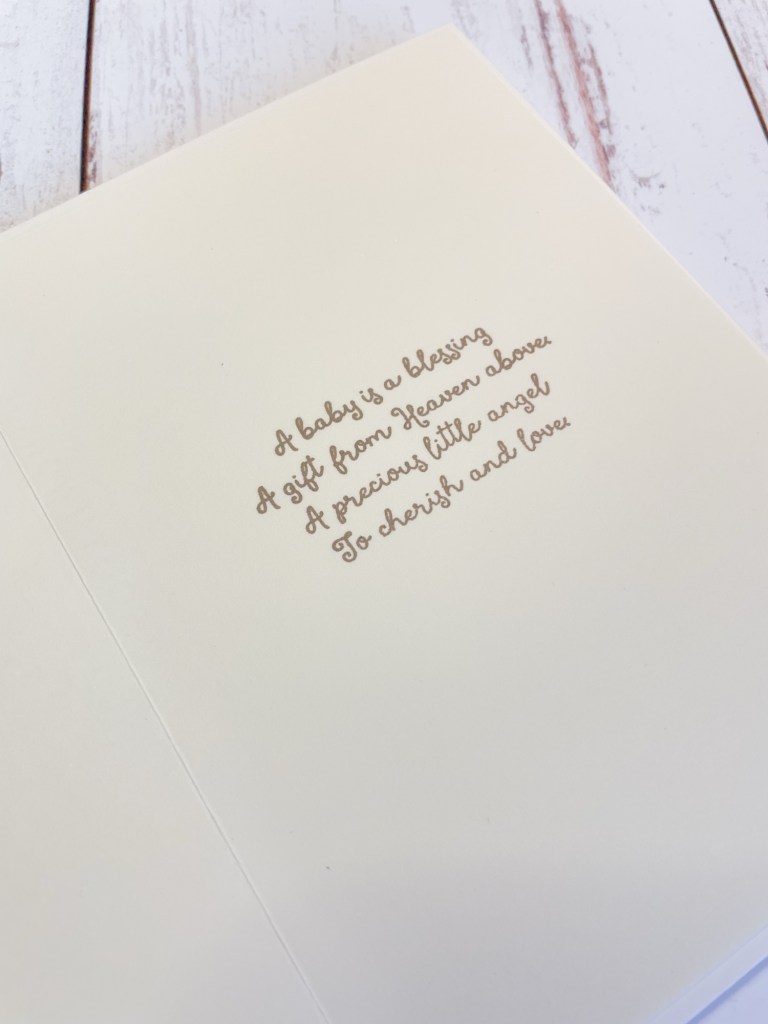 A baby is a blessing
A gift from Heaven above.
A precious little angel
To cherish and love.